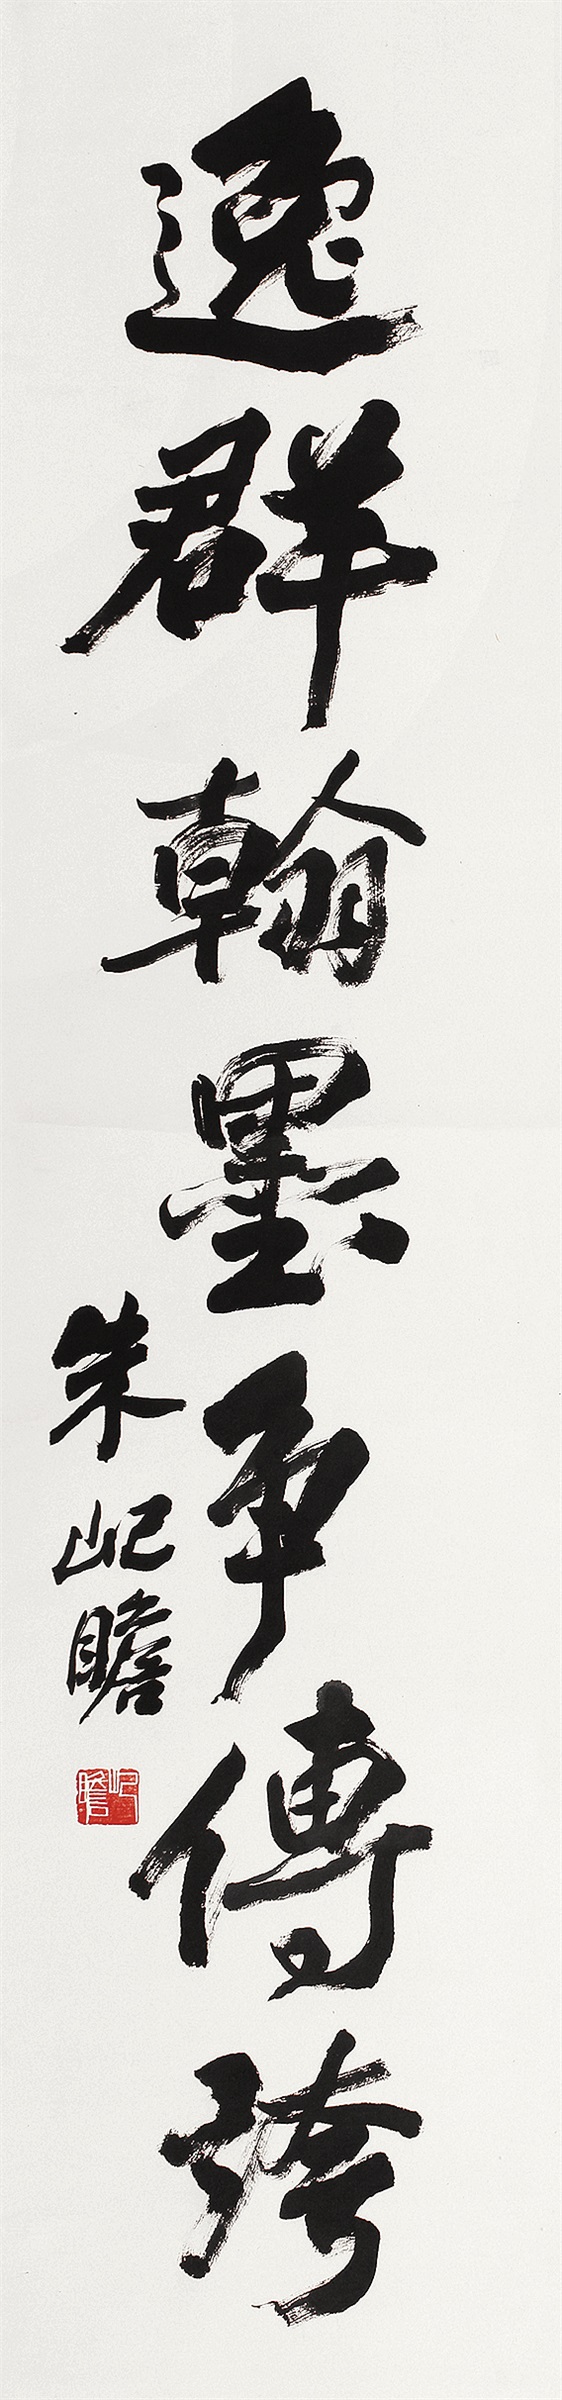 逸群翰墨争傳誇
朱屺瞻
屺瞻